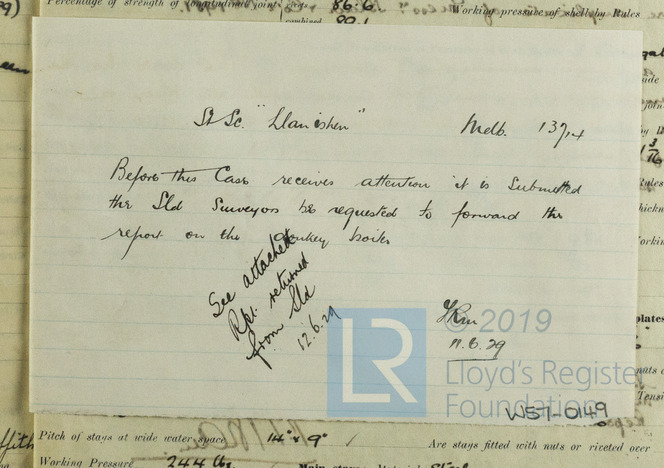 Percentage of strength of longitudinal joint
86.6
Working pressure of shell by Rules
combined
90.1
St Sc. "Llanishen" Melb. 13714
Before this Case receives attention it is submitted
the Sld Surveyors be requested to forward the
report on the donkey boiler
See attached
Rpt. returned
from Sld
12.6.29
11.6.29
LR
© 2019
Lloyd's Register
Foundation
W57-0149
Pitch of stays at wide water space 14" x 9" Are stays fitted with nuts or riveted over
Working Pressure 244 lbs.